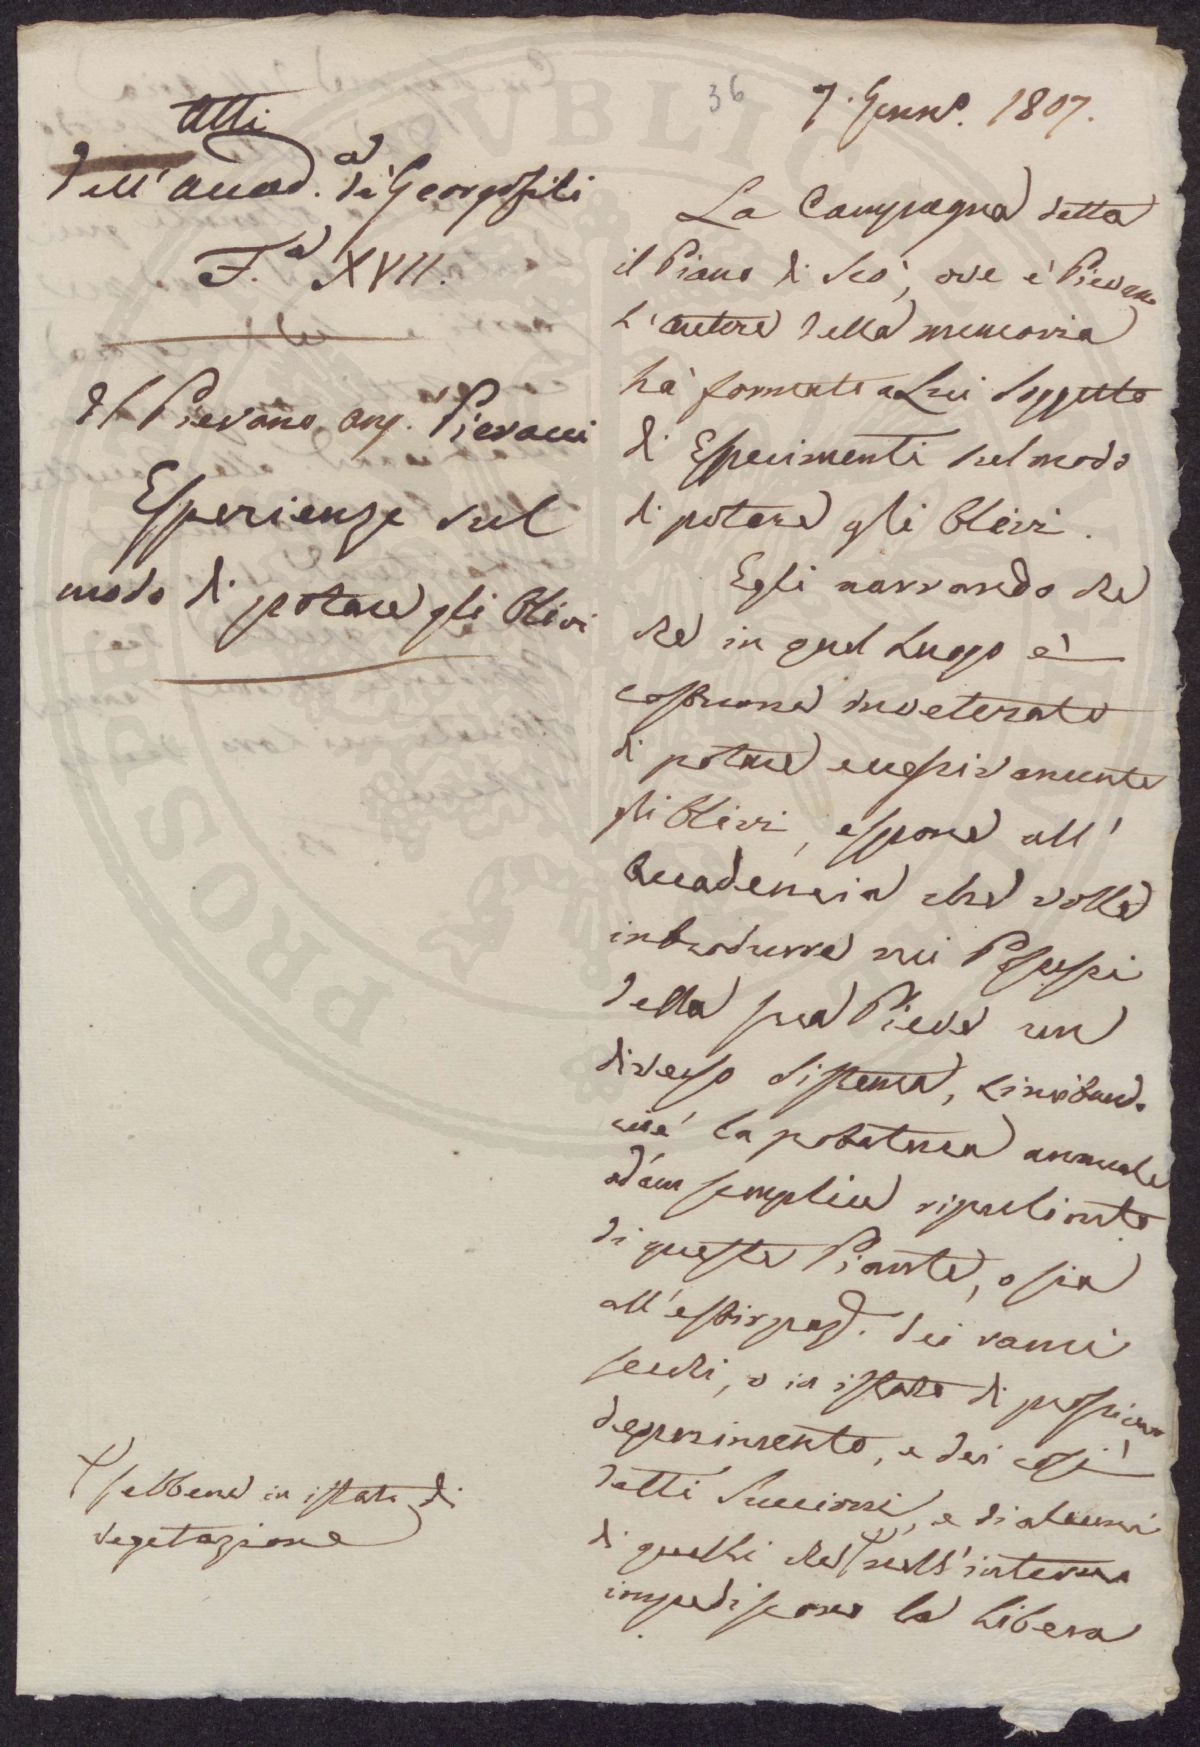 36
7. Genn.o 1807.
Atti
dell'Accad.a de' Georgofili
F.a XVII.
Il Pievano Ang. Pieracci
Esperienze sul
modo di potare gli Olivi
La Campagna detta
il Piano di Scò, ove è Pievano
L'autore della memoria
hà formato a Lui Soggetto
di Esperimenti sul modo
di potare gli Olivi.
Egli narrando che
che in quel Luogo è
costume inveterato
di potare eccessivamente
gli Olivi, espone all'
Accademia che volle
introdurre nei Possessi
della sua Pieve un
diverso Sistema, Limitando
cioè la potatura annuale
ad un semplice ripulimto
di queste Piante, o sia
all'estirpaz. dei rami
secchi, o in istato di prossimo
deperimento, e dei così
detti Succioni, e di alcuni
di quelli che nell'interno
impediscono la Libera
sebbene in istato di
vegetazione
PVBLICAE
PROSPERITATI